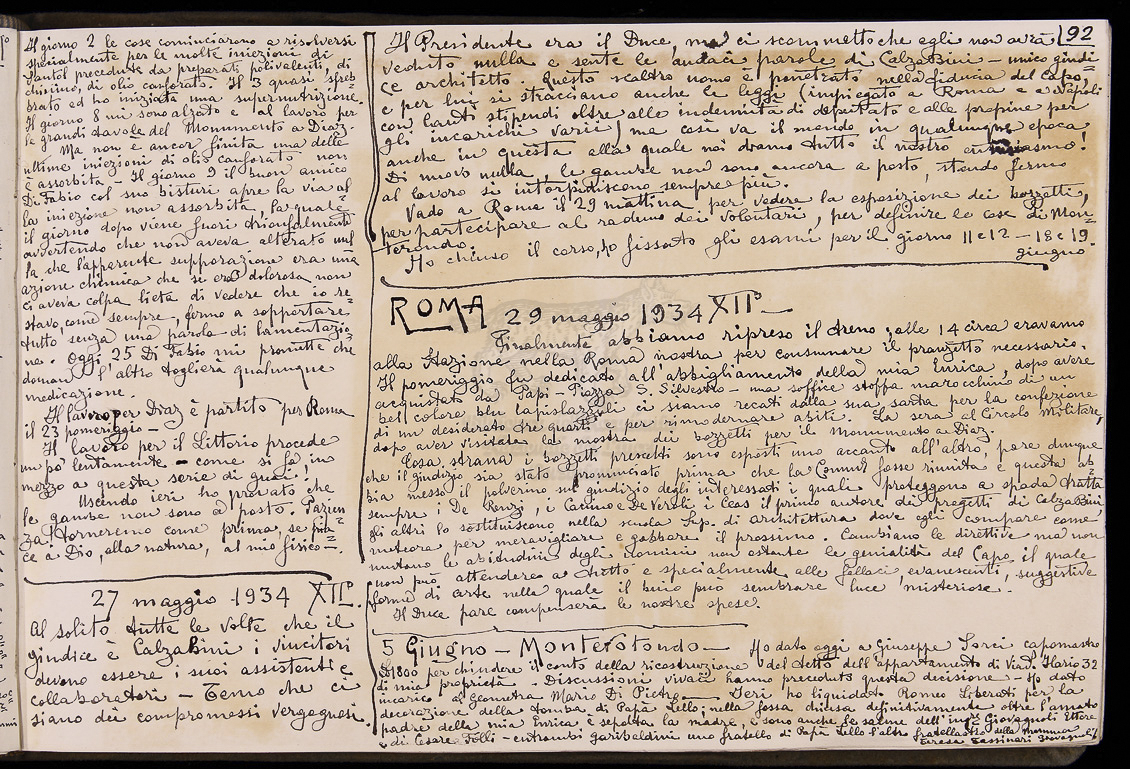 Il giorno 2 le cose cominciarono a risolversi
specialmente per le molte iniezioni di
preceduta da preparati polivalenti, di
di olio canforato. Il 3 quasi sfeb-
brato ed ho iniziata una supernutrizione.
Il giorno 8 mi sono alzato e al lavoro per
le grandi tavole del Monumento a Diaz.
Ma non è ancor finita una delle
ultime iniezioni di olio canforato non
è assorbita – Il giorno 9 il buon amico
Di Fabio col suo bisturi apre la via al
la iniezione non assorbita, la quale
il giorno dopo viene fuori trionfalmente
avvertendo che non aveva alterato nul
la che l'apparente supporazione era una
azione chimica che se era dolorosa non
ci aveva colpa, lieta di vedere che io re-
stavo, come sempre, fermo a sopportare
tutto senza una parola di lamentazio-
ne. Oggi 25 Di Fabio mi promette che
domani l'altro toglierà qualunque
medicazione.
Il lavoro per Diaz è partito per Roma
il 23 pomeriggio –
Il lavoro per il Littorio procede
un po' lentamente – come si fa, in
mezzo a questa serie di guai!
Uscendo ieri ho provato che
le gambe non sono a posto. Pazien
za! torneremo come prima, se pia-
ce a Dio, alla natura, al mio fisico –
27 maggio 1934 XII°.
Al solito tutte le volte che il
giudice è Calza Bini i vincitori
devono essere i suoi assistenti e
collaboratori – Temo che ci
siano dei compromessi vergognosi.
92
Il Presidente era il Duce, ma ci scommetto che egli non avrà
veduto nulla e sente le audaci parole di Calza Bini – unico giudi-
ce architetto. Questo scaltro uomo è penetrato nella fiducia del Capo,
e per lui si stracciano anche le leggi (impiegato a Roma e a Napoli
con lauti stipendi oltre alle indennità di deputato e alle propine per
gli incarichi varii) ma così va il mondo in qualunque epoca
anche in questa alla quale noi diamo tutto il nostro entusiasmo!
Di nuovo nulla, le gambe non sono ancora a posto, stando fermo
al lavoro si intorpidiscono sempre più.
Vado a Roma il 29 mattina per vedere la esposizione dei bozzetti,
per partecipare al raduno dei Volontari, per definire le cose di Mon-
terondo.
Ho chiuso il corso, ho fissato gli esami per il giorno 11 e 12 – 18 e 19
giugno
ROMA 29 maggio 1934 XII° –
Finalmente abbiamo ripreso il treno; alle 14 circa eravamo
alla stazione nella Roma nostra per consumare il pranzetto necessario.
Il pomeriggio fu dedicato all'abbigliamento della mia Enrica, dopo avere
acquistato da Papi – Piazza S. Silvestro – una soffice stoffa marocchino di un
bel colore blu lapislazzuli ci siamo recati dalla sua sarta per la confezione
di un desiderato tre quarti e per rimodernare abiti. La sera al Circolo Militare,
dopo aver visitata la mostra dei bozzetti per il monumento a Diaz.
Cosa strana i bozzetti prescelti sono esposti uno accanto all'altro, pare dunque
che il giudizio sia stato pronunciato prima che la Comm. fosse riunita e questa ab-
bia messo il polverino sul giudizio degli interessati i quali proteggono a spada tratta
sempre i De Renzi, i e De Veroli, i il primo autore dei progetti di Calza Bini,
gli altri lo sostituiscono nella scuola Sup. di architettura dove egli compare come
meteora per meravigliare e gabbare il prossimo. Cambiano le direttive ma non
mutano le abitudini degli uomini non ostante le genialità del Capo, il quale
non può attendere a tutto e specialmente alle fallaci, evanescenti, suggestive
forme di arte nella quale il buio può sembrare luce misteriosa.
Il Duce pare compenserà le nostre spese.
5 Giugno – Monterotondo – Ho dato oggi a Giuseppe capomastro
£ 1800 per chiudere il conto della ricostruzione del tetto dell'appartamento di Via S. Ilario 32
di mia proprietà – Discussioni vivaci hanno preceduto questa decisione – Ho dato
incarico al Geometra Mario Di Pietro. – Ieri ho liquidato Romeo Liberati per la
decorazione della tomba di Papà Lello; nella fossa chiusa definitivamente oltre l'amato
padre della mia Enrica è sepolta la madre, e sono anche le salme dell'ing.e Giovagnoli Ettore
e di Cesare Folli – entrambi garibaldini uno fratello di Papà Lello l'altro fratellastro della Mamma
Teresa Tassinari Giovagnoli